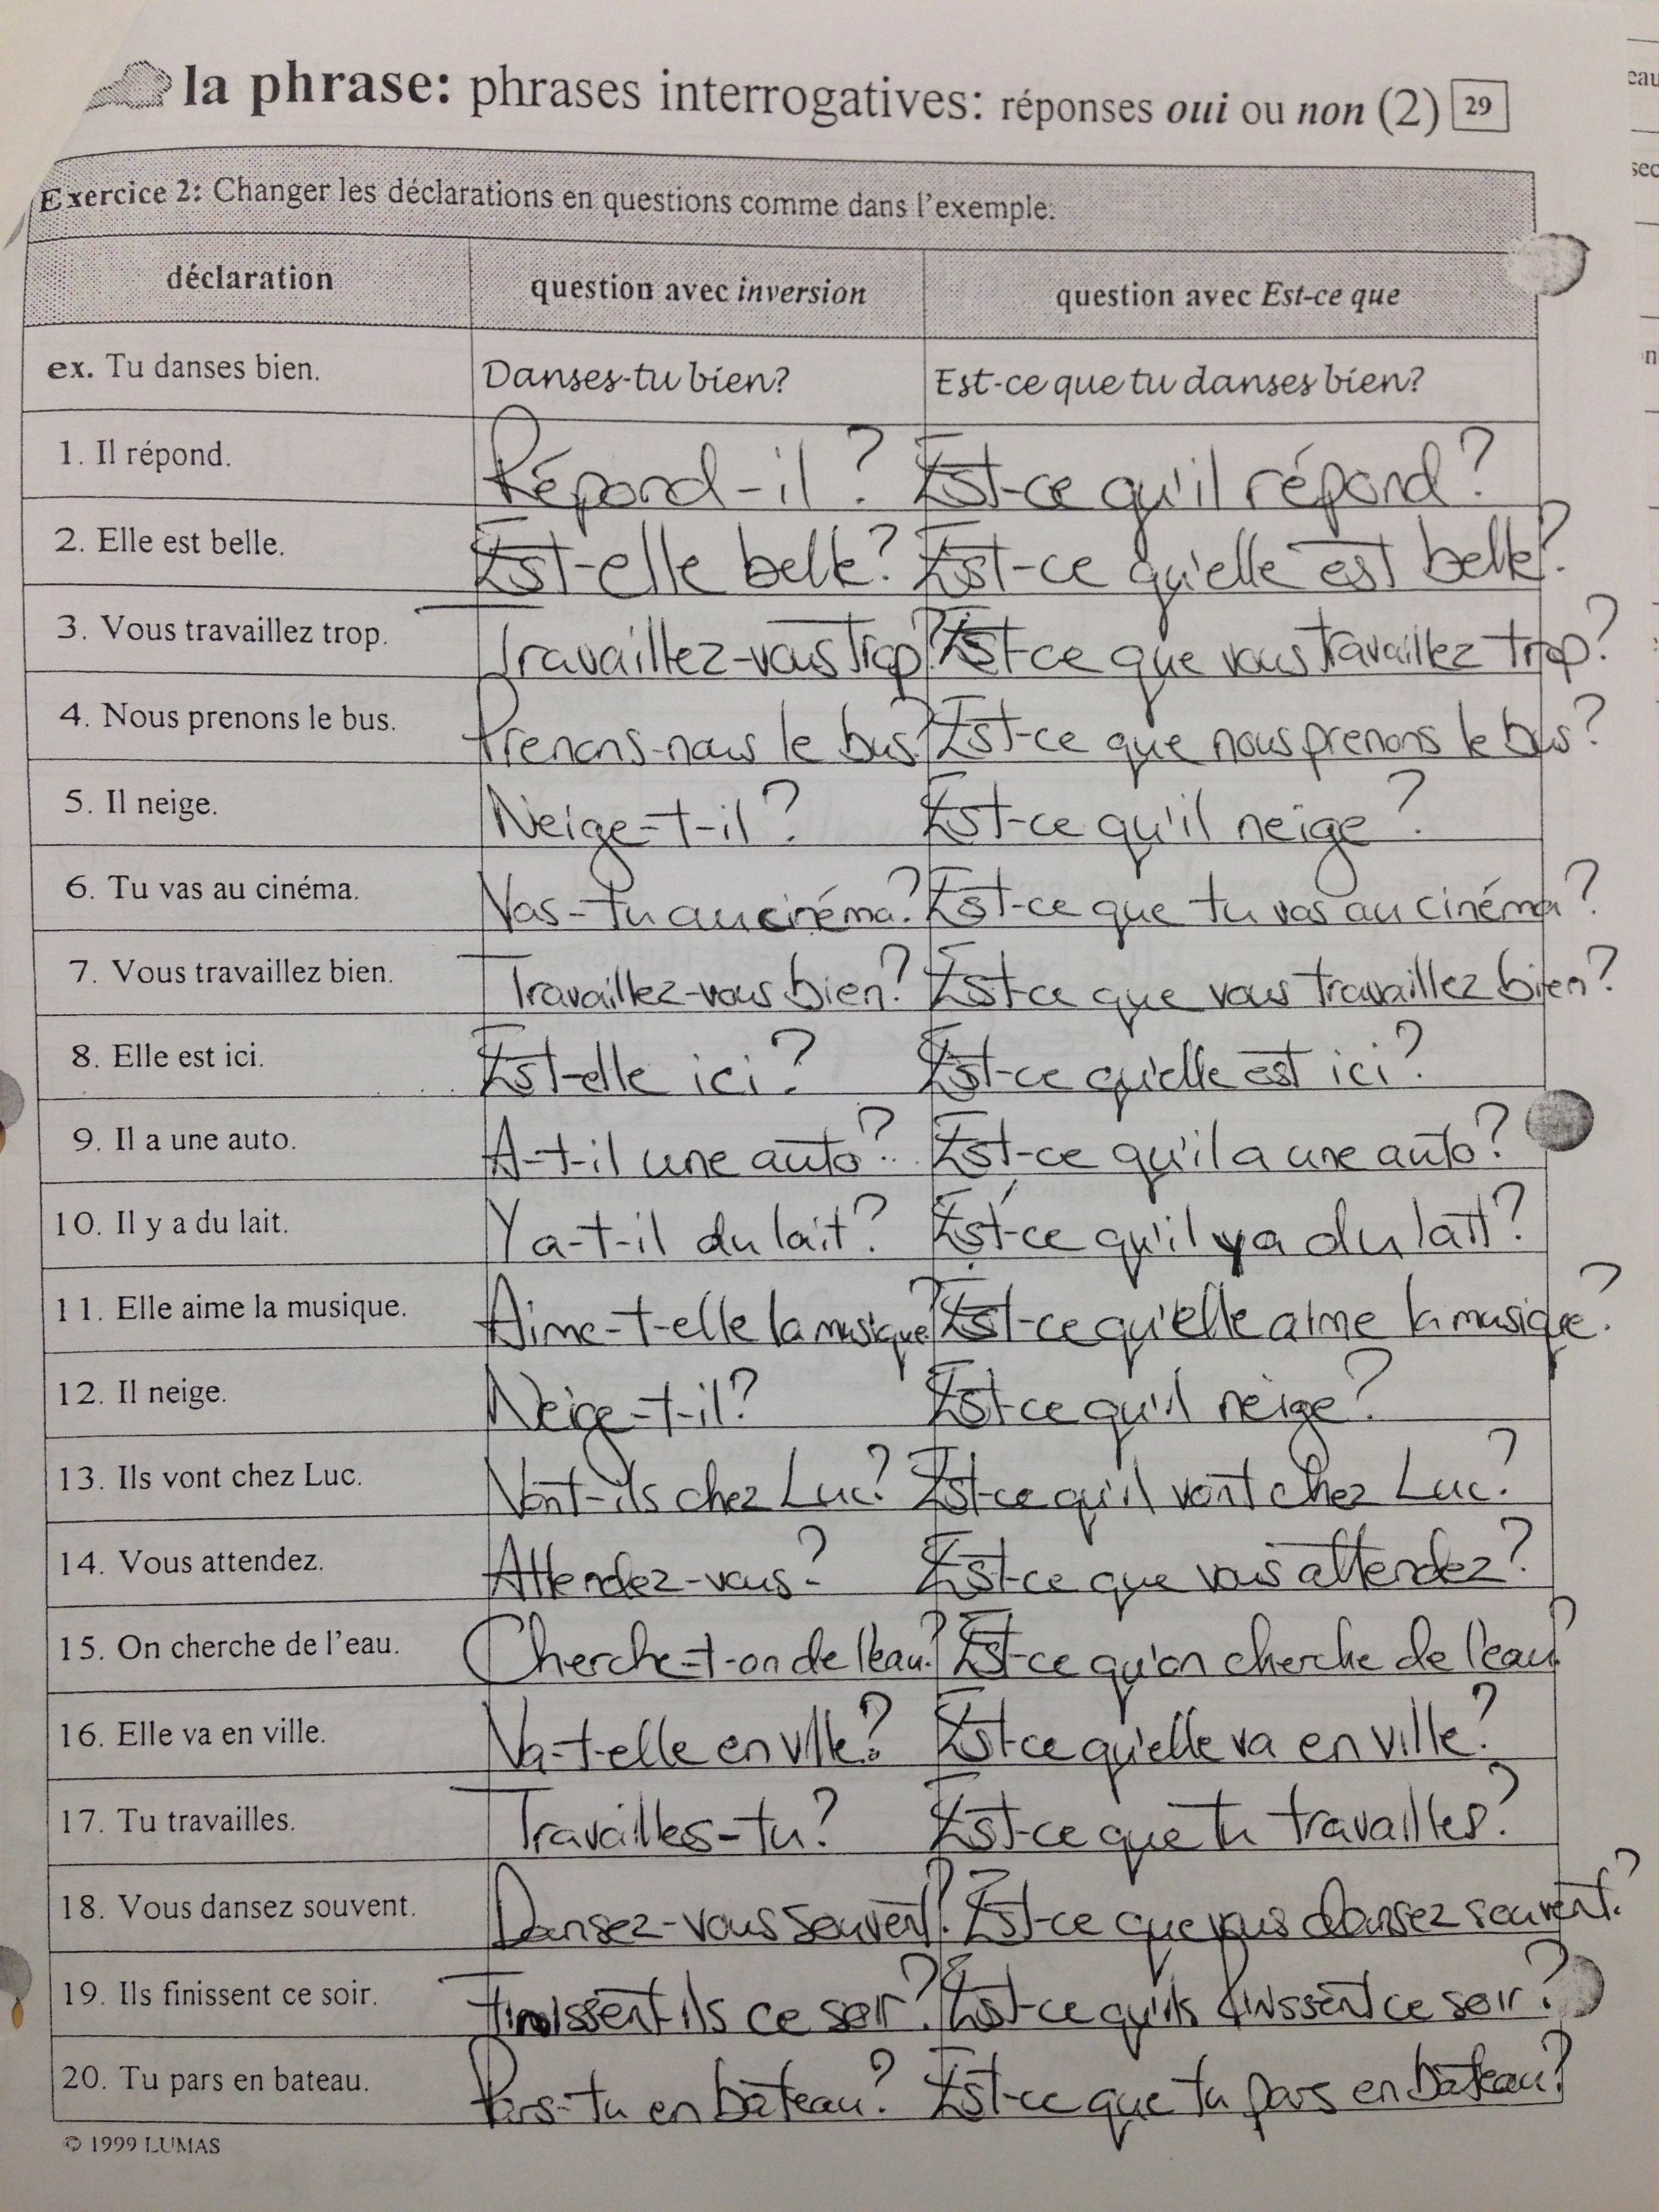 la phrase: phrases interrogatives: réponses oui ou non (2) 29
Exercice 2: Changer les déclarations en questions comme dans l'exemple.
déclaration question avec inversion question avec Est-ce que
ex. Tu danses bien. Danses-tu bien? Est-ce que tu danses bien?
1. Il répond. Répond-il? Est-ce qu'il répond?
2. Elle est belle. Est-elle belle? Est-ce qu'elle est belle?
3. Vous travaillez trop. Travaillez-vous trop? Est-ce que vous travaillez trop?
4. Nous prenons le bus. Prenons-nous le bus? Est-ce que nous prenons le bus?
5. Il neige. Neige-t-il? Est-ce qu'il neige?
6. Tu vas au cinéma. Vas-tu au cinéma? Est-ce que tu vas au cinéma?
7. Vous travaillez bien. Travaillez-vous bien? Est-ce que vous travaillez bien?
8. Elle est ici. Est-elle ici? Est-ce qu'elle est ici?
9. Il a une auto. A-t-il une auto? Est-ce qu'il a une auto?
10. Il y a du lait. Y a-t-il du lait? Est-ce qu'il y a du lait?
11. Elle aime la musique. Aime-t-elle la musique? Est-ce qu'elle aime la musique?
12. Il neige. Neige-t-il? Est-ce qu'il neige?
13. Ils vont chez Luc. Vont-ils chez Luc? Est-ce qu'il vont chez Luc?
14. Vous attendez. Attendez-vous? Est-ce que vous attendez?
15. On cherche de l'eau. Cherche-t-on de l'eau? Est-ce qu'on cherche de l'eau?
16. Elle va en ville. Va-t-elle en ville? Est-ce qu'elle va en ville?
17. Tu travailles. Travailles-tu? Est-ce que tu travailles?
18. Vous dansez souvent. Dansez-vous souvent? Est-ce que vous dansez souvent?
19. Ils finissent ce soir. Finissent-ils ce soir? Est-ce qu'ils finissent ce soir?
20. Tu pars en bateau. Pars-tu en bateau? Est-ce que tu pars en bateau?
© 1999 LUMAS